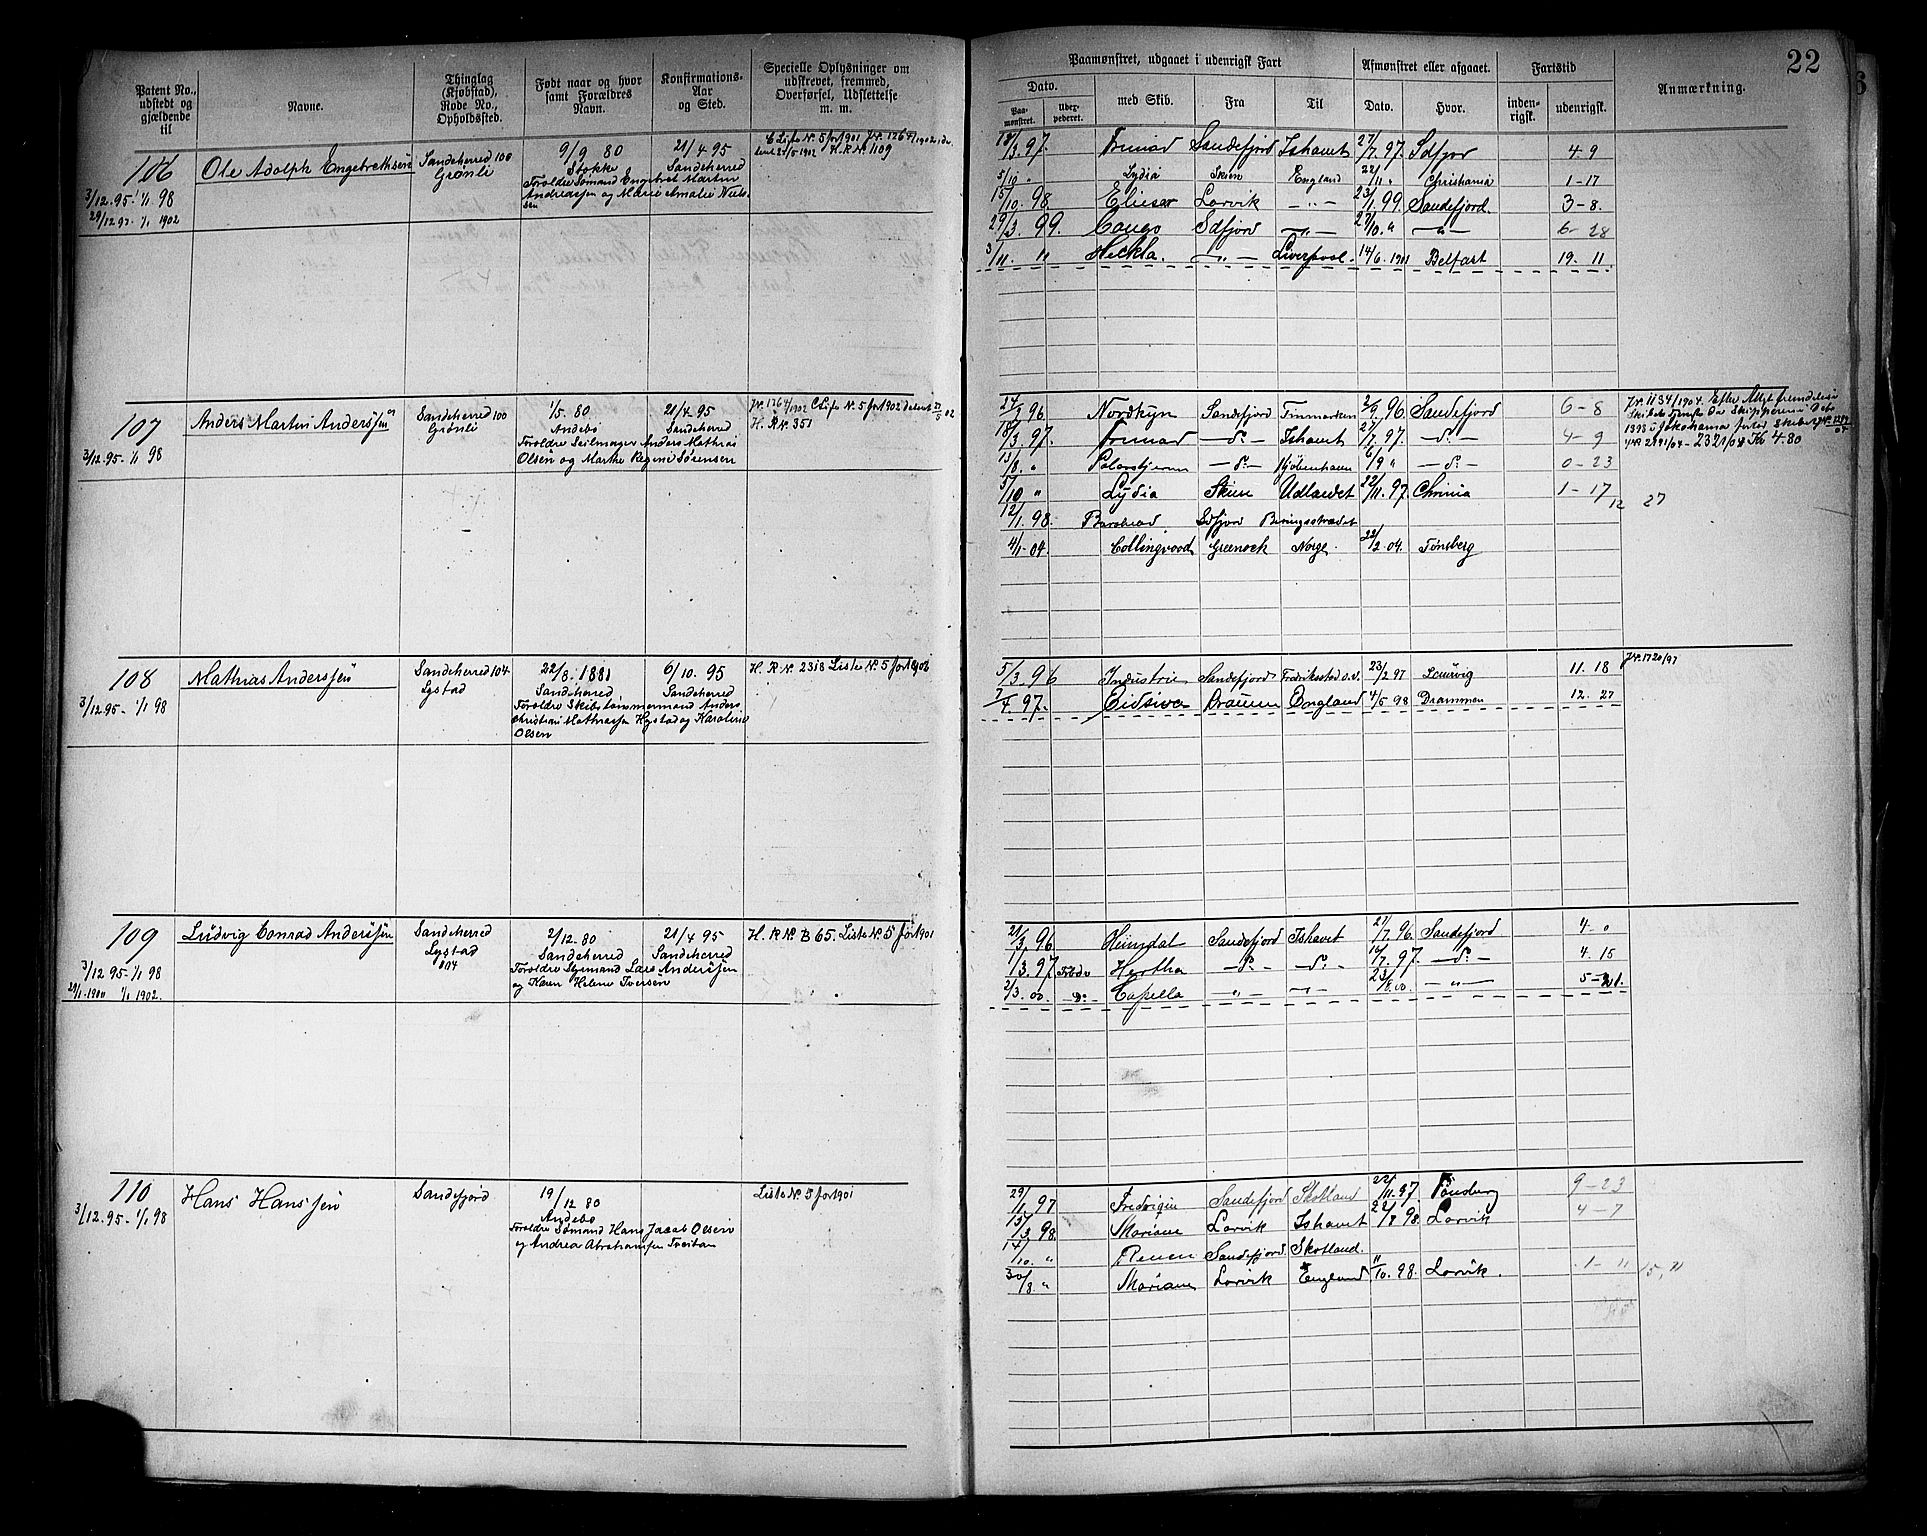 Patent No., udstedt og gjældende til
Navne.
Thinglag (Kjøbstad), Rode No., Opholdssted.
Født naar og hvor samt Forældres Navn.
Konfirmations-Aar og Sted.
Specielle Oplysninger om udskrevet, fremmed, Overførsel, Udslettelse m. m.
106
3/12. 95 - 1/1 98
29/12 97. 1/1 1902
Ole Adolph Engebrethsen
Sandeherred 100
Grønli
9/9 80
Stokke
Forældre Sømand Engebret Martin
Andreassen og Marie Amalie Niel-
sen
21/4 95
Sandeherred
C Liste N. 5 for 1901 J.Nr. 1764/1902
H. R. No 1109
107
3/12. 95 - 1/1 98
Anders Martin Anderssen
Sandeherred 100
Grønli
1/5. 80
Andebo
Forældre Seilmager Anders Mathias
Olsen og Marthe Regine Sørensen
21/4 95
Sandeherred
J.Nr. 1764/1902 C Liste N. 5 for 1902
H. R. N. 351
108
3/12. 95 - 1/1 98
Mathias Anderssen
Sandeherred 104
Lystad
22/8. 1881
Sandeherred,
Forældre Skibstømmermand Anders
Christian Mathiassen Hystad og Karoline
Olsen
6/10. 95
Sandeherred
H. R. N. 2318 Liste N. 5 for 1903
109
3/12. 95 - 1/1 98
29/1. 1900 1/1 1902.
Ludvig Conrad Anderssen
Sandeherred
Lystad
104
2/12. 80
Sandeherred
Forældre Styrmand Lars Anderssen
og Karen Helene Iversen
21/4 95
Sandeherred
H. R. No. B 65. Liste N. 5 for 1901
110
3/12. 95 - 1/1 98
Hans Hanssen
Sandefjord
19/12 80
Andebo
Forældre Sømand Hans Jacob Olsen
og Andrea Abrahamsen Treitan
Liste N. 5 for 1901
22
Paamønstret, udgaaet i udenrigsk Fart
Afmønstret eller afgaaet.
Fartstid
Anmærkning.
Dato.
Paa-mønstret.
Uder-pederet.
med Skib.
Fra
Til
Dato.
Hvor.
inden-rigsk.
udenrigsk.
/3. 97. Trumad Sandefjord Ishavet 27/7. 97. Sdfjor 4 - 9
5/10 " Lydia Skien England 22/11 " Christiania 1 - 17
15/10. 98. Elieser Larvik - " - 23/1. 99. Sandefjord. 3 - 8.
29/3. 99. Congo Sdfjord - " - 27/10. " - " - 6 - 28
3/11. " Heckla. - " - Liverpool. 14/6. 1901 Belfast 19. 11
24/2 96. Nordkyn Sandefjord Finmarken 2/9. 96. Sandefjord 6 - 8
18/3. 97. Trumad - d° - Ishavet 27/7. 97. - d° - 4 - 9
13/8. " Polarstjernen - d° - Kjøbenhavn 6/9 " - d° - 0 - 23
5/10 " Lydia Skien Udlandet 22/11. 97. Chrinia 1 - 17
12 27
12/1. 98. Sdfjord Beringsstrædet
4/1. 04. Collingwood Greenock Norge. 22/2 04. Tønsberg
J.Nr. 1134/1904.
5/3. 96 Industrie Sandefjord Fredriksstad o.v. 23/2 97 11. 18
J.Nr. 1720/97
7/4. 97. Eidsiva Drammen England 4/5 98 Drammen 12. 27
21/3. 96 Heimdal Sandefjord Ishavet 21/7. 96. Sandefjord 4. 0
1/3. 97 Hertha - d° - - d° - 14/7. 97. - d° - 4. 15
2/3. 00 - D° - Capella - " - - " - 23/8. 00. - " - 5 - 21.
29/1. 97 Sandefjord Skotland 22/11. 97. Tønsberg 9 - 23
15/3. 98. Mariane Larvik Ishavet 22/8 98. Larvik 4 - 7
14/10. " Sandefjord Skotland.
30/8. " Mariane Larvik England "/10. 98. Larvik. 1 - 11
15, 11